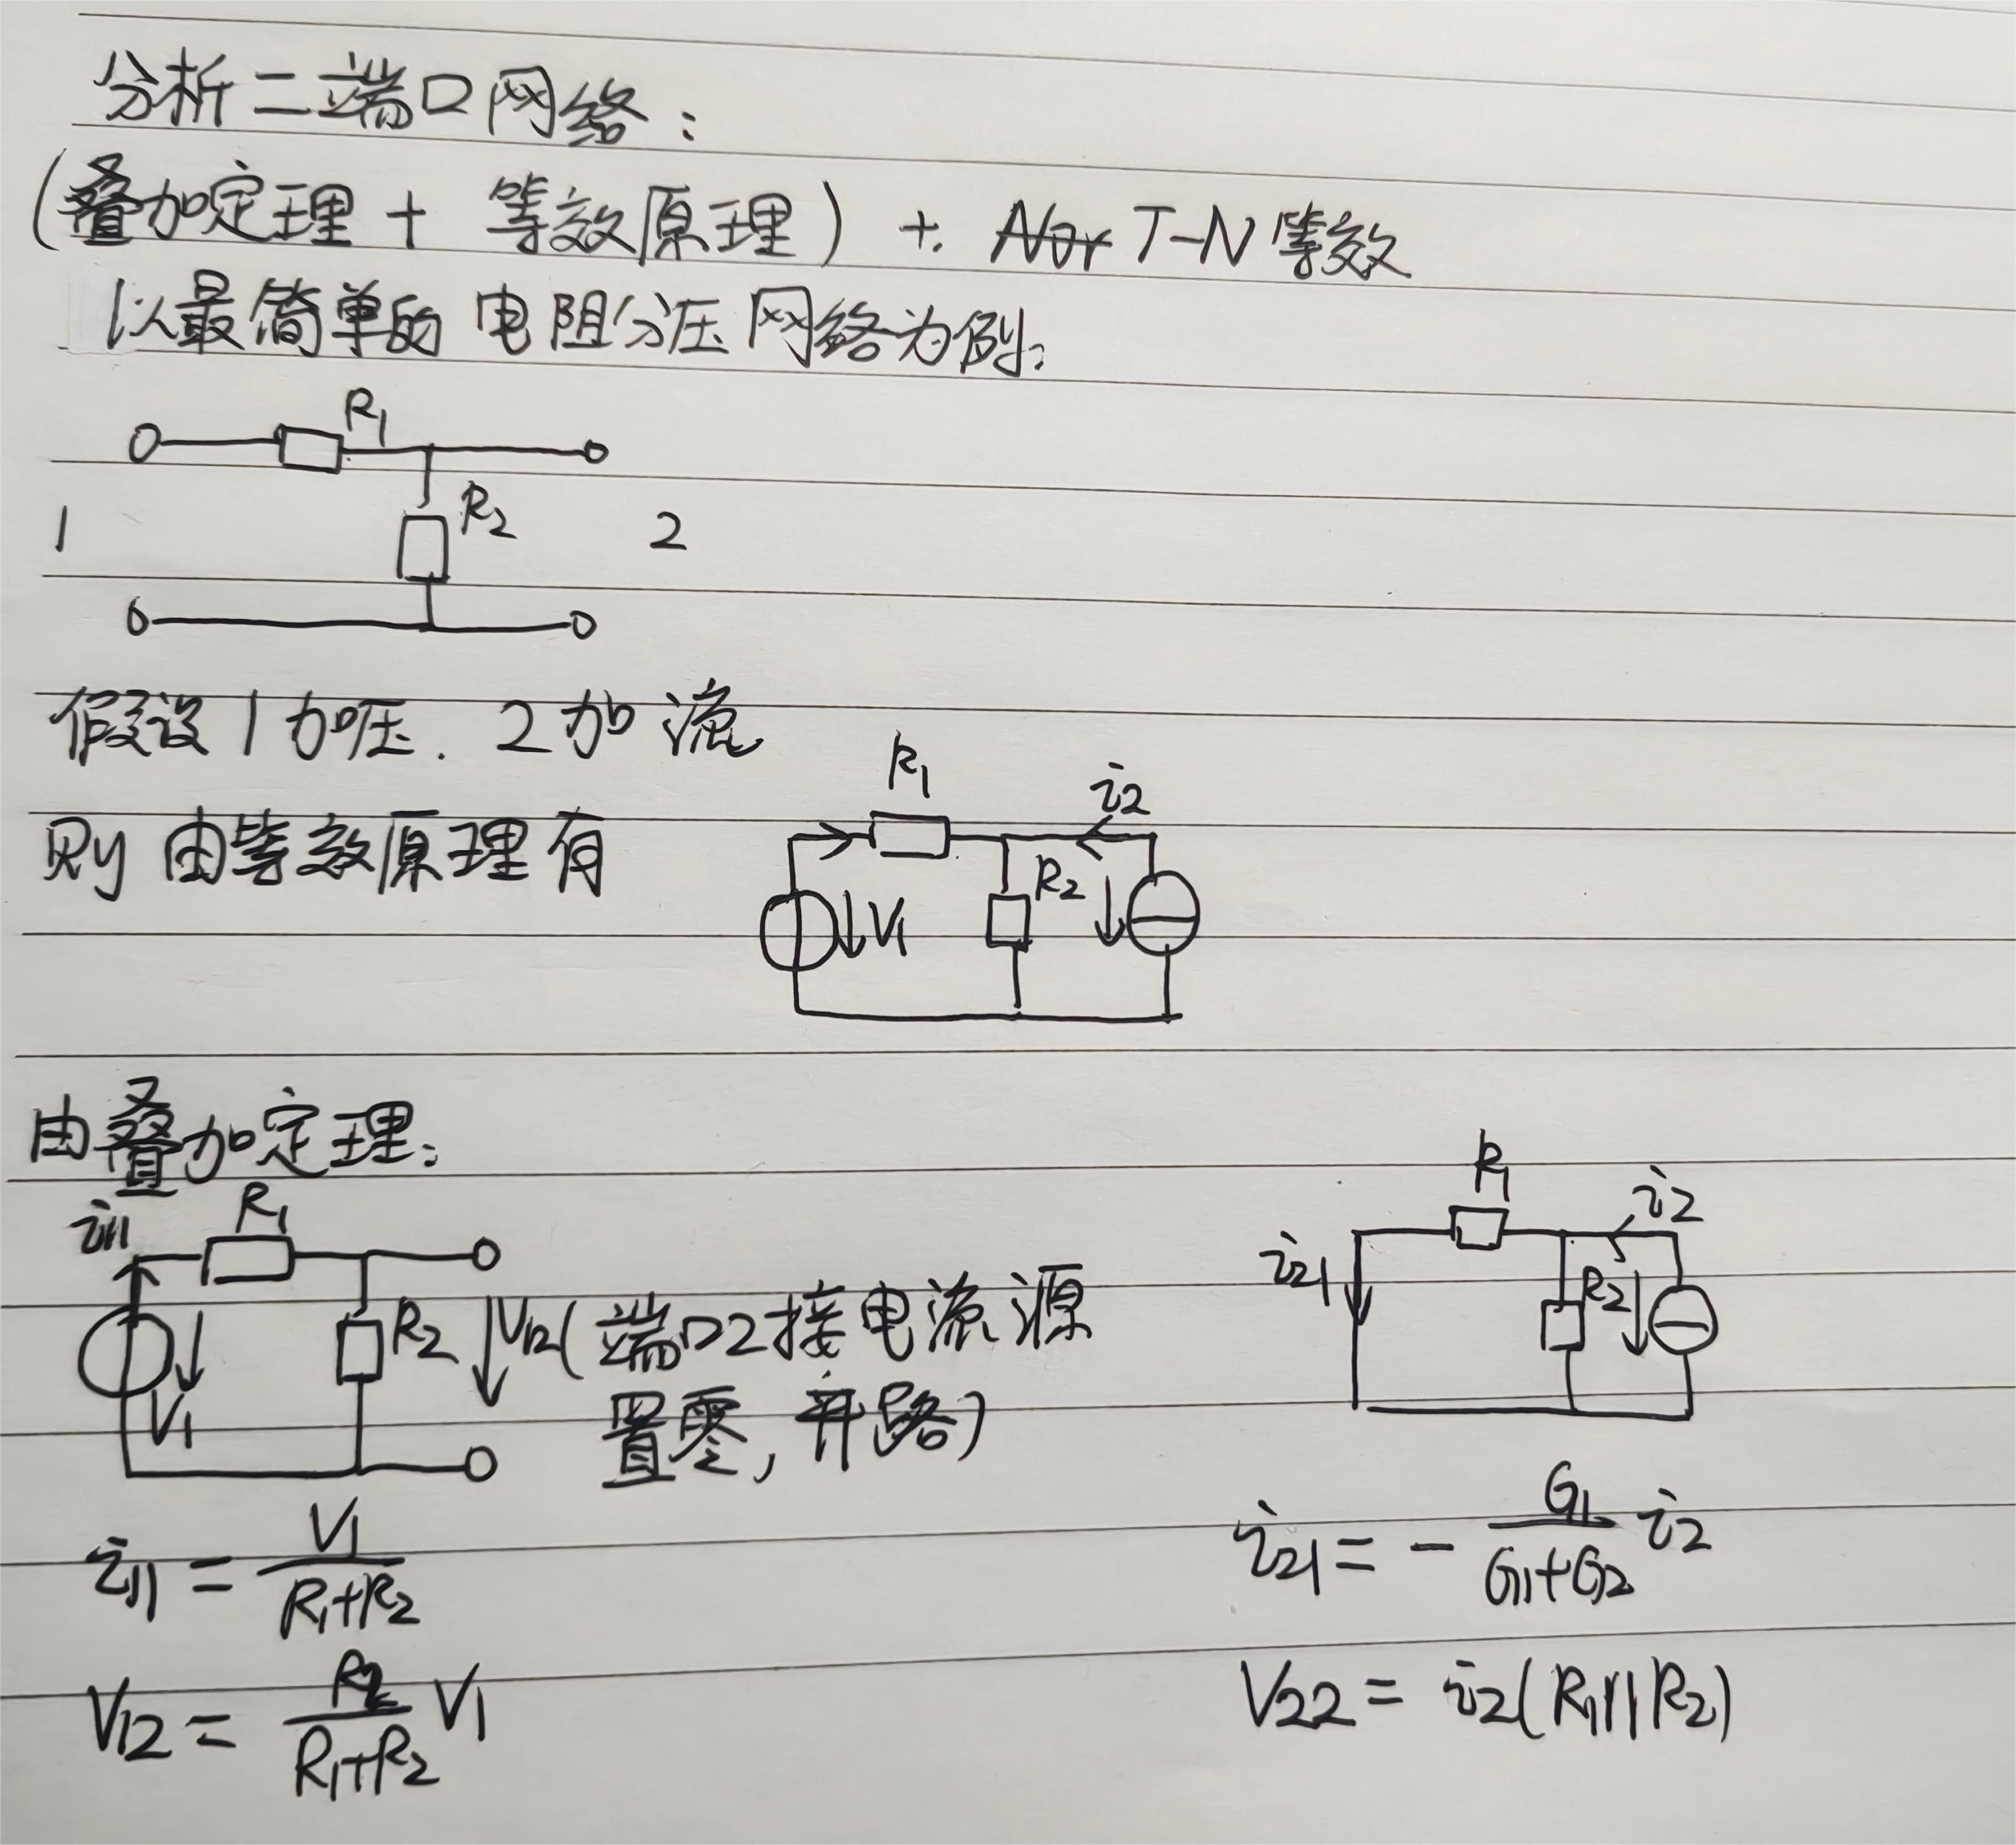 分析二端口网络：
(叠加定理 + 等效原理) + T-N等效
以最简单的电阻分压网络为例：
R₁
R₂
1
2
假设1加压. 2加流
则由等效原理有
R₁
i₂
R₂
V₁
由叠加定理：
i₁₁
R₁
R₂
V₁₂(端口2接电流源
置零, 开路)
V₁
R₁
i₂
i₂₁
R₂
i₁₁ = V₁/(R₁+R₂)
i₂₁ = - G₁/(G₁+G₂) i₂
V₁₂ = R₂/(R₁+R₂) V₁
V₂₂ = i₂(R₁||R₂)